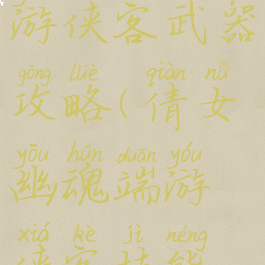 游侠客武器
gōng lüè qiàn nǚ
攻略(倩女
yōu hún duān yóu
幽魂端游
xiá kè jì néng
侠客技能